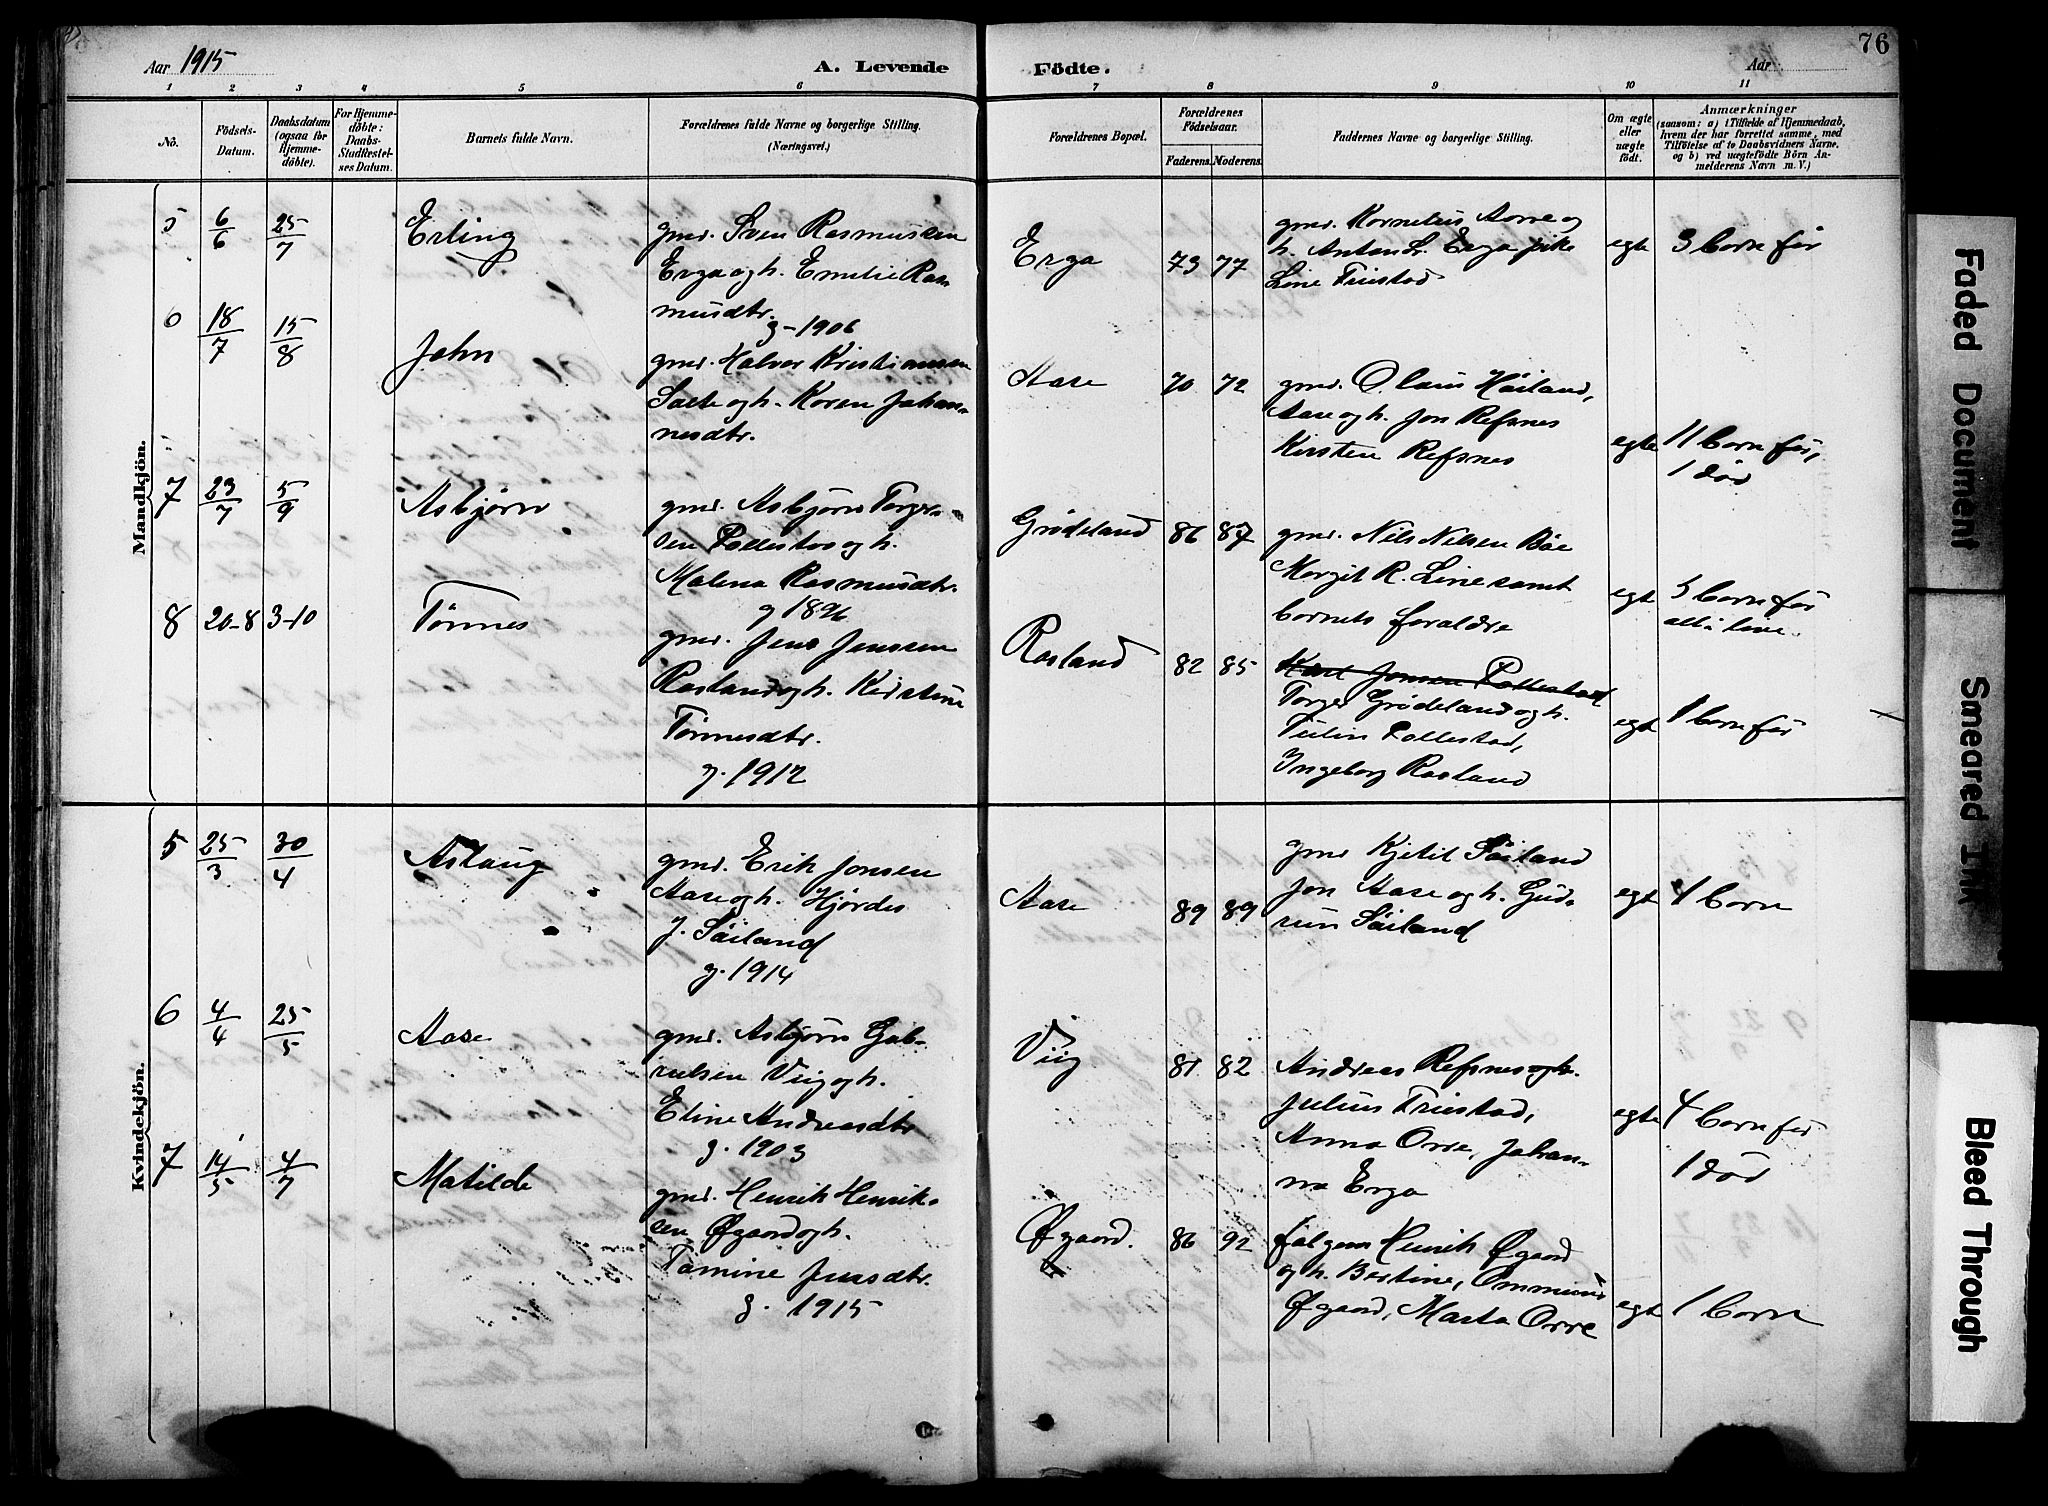 Aar 1915
A. Levende
Födte.
Aar
76
1 2 3 4 5 6 7 8 9 10 11
No.
Födsels-
Datum.
Daabsdatum
(ogsaa for
Hjemme-
döbte).
For Hjemme-
döbte:
Daabs-
Stadfæstel-
ses Datum.
Barnets fulde Navn.
Forældrenes fulde Navne og borgerlige Stilling.
(Næringsvei.)
Forældrenes Bopæl.
Forældrenes
Födselsaar.
Faderens. Moderens.
Faddernes Navne og borgerlige Stilling.
Om ægte
eller
uægte
født.
Anmærkninger
(saasom: a) i Tilfælde af Hjemmedaab,
hvem der har forrettet samme, med
Tilföielse af to Daabsvidners Navne,
og b) ved uægtefödte Börn An-
melderens Navn m. V.)
Mandkjön.
5 6/6 25/7 Erling
gmd. Sven Rasmussen
Erga og h. Emelie Ras
musdtr.
g-1906
Erga 73 77
gmd. Kornelius Aorre og
h. Anton L. Erga pike
Line Friestad
egte 3 born før
6 18/7 15/8 John
gmd. Halvor Kristiansen
Salte og h. Karen Johan-
nesdtr.
Aase 70 72
gmd. Olaus Høiland,
Aase og h. Jon Refsnes
Kirsten Refsnes
egte 11 born før,
1 død
7 23/7 5/9 Asbjørn
gmd. Asbjørn Torger-
sen Pollestad og h.
Malena Rasmusdtr.
g 1896
Grødeland 86 87
gmd. Nils Nilsen Bøe
Margit R. Line samt
bornets foraldre
egte 5 born før
all i live.
8 20-8 3-10 Tønnes
gmd. Jens Jenssen
Rosland og h. Kirstine
Tønnesdtr.
g. 1912
Rosland 82 85
Karl Jonsen Pollestad
Torger Grødeland og h.
Tulin Pollestad,
Ingeborg Rosland
egte 1 born før
Kvindekjön.
5 25/3 30/4 Aslaug
gmd. Erik Jonsen
Aase og h. Hjørdes
J. Søiland
g. 1914
Aase 89 89
gmd Kjetil Søiland
Jon Aase og h. Gud-
run Søiland
egte 1 born
6 4/4 25/5 Aase
gmd. Asbjørn Gab-
rielsen Viig og h.
Eline Andreasdtr
g. 1903
Viig 81 82
Andreas Refsnes og h.
Julius Friestad,
Anna Orre, Johan-
na Erga
egte 4 born før
1 død
7 14/5 4/7 Matilde
gmd. Henrik Henrik-
sen Øgaard og h.
Tomine Jensdtr.
g. 1915
Øgaard. 86 92
folgem Henrik Øgaard
og h. Bertine, Ommund
Øgaard, Marta Orre
egte 1 born
Faded Document
Smeared Ink
Bleed Through